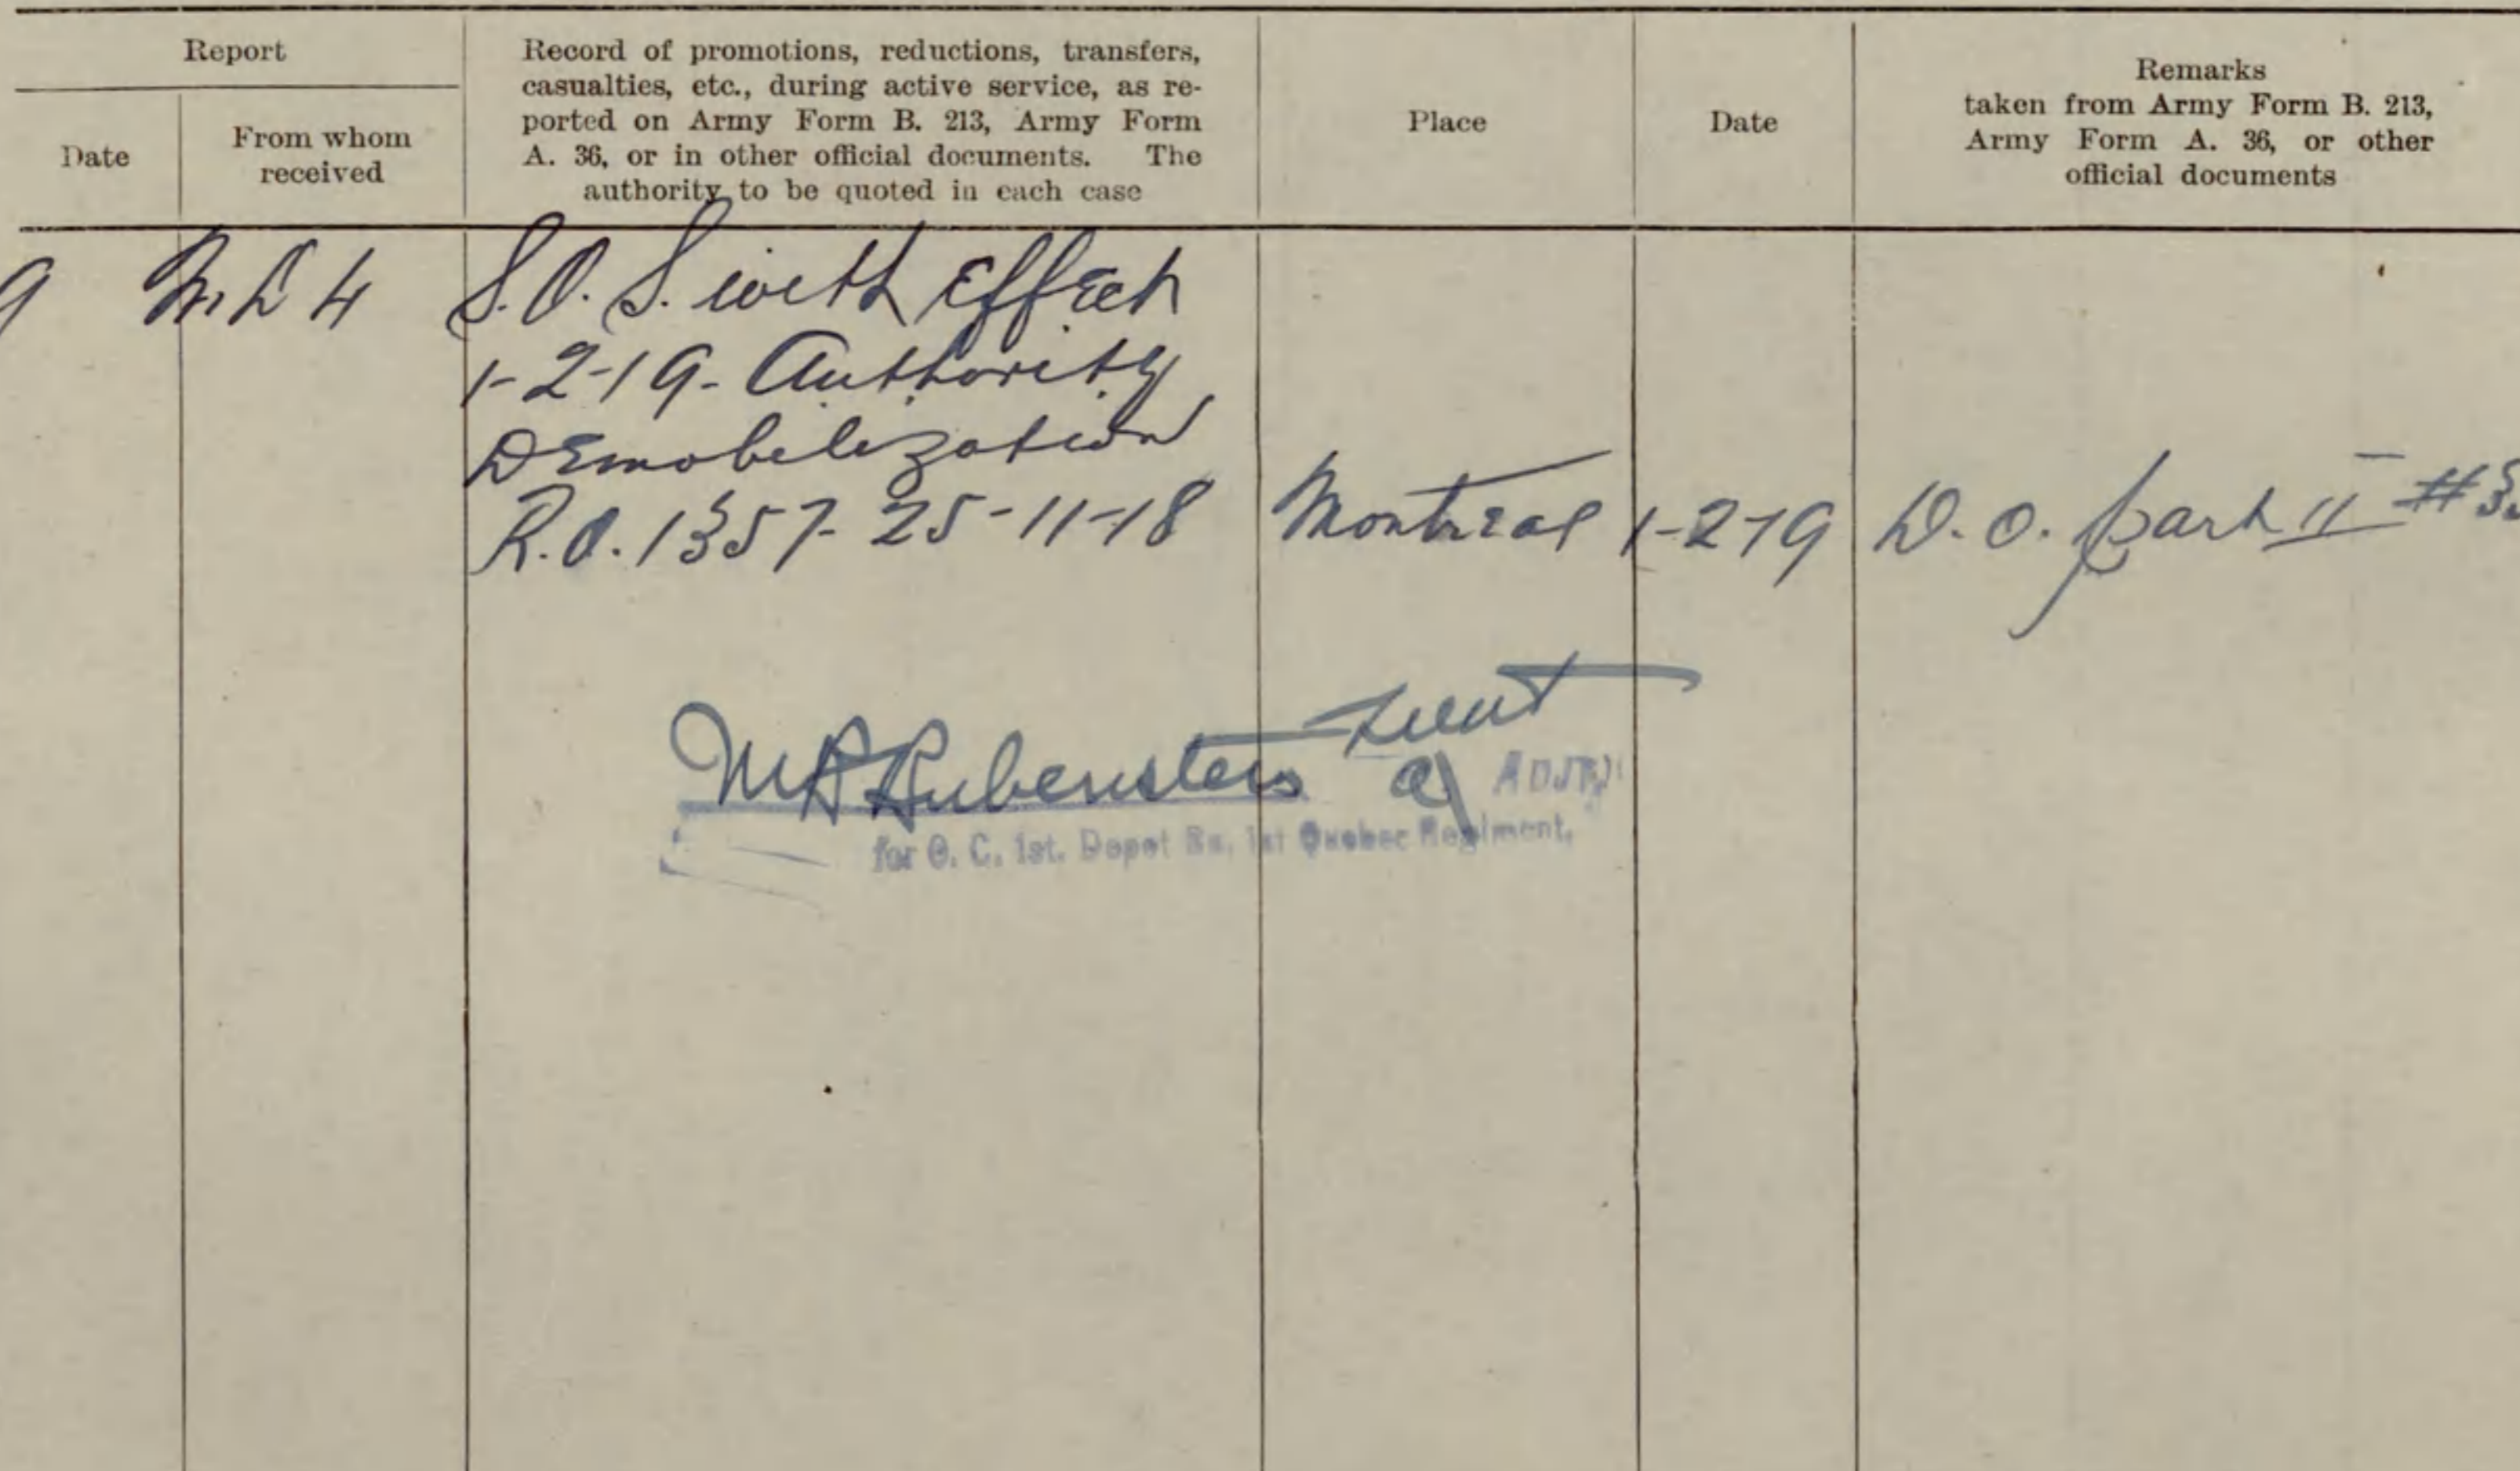 Report
Date
From whom
received
Record of promotions, reductions, transfers,
casualties, etc., during active service, as re-
ported on Army Form B. 213, Army Form
A. 36, or in other official documents. The
authority to be quoted in each case
Place
Date
Remarks
taken from Army Form B. 213,
Army Form A. 36, or other
official documents
9 M.D 4 S.O.S. with Effect
1-2-19- Authority
DEmobilization
R.O. 1357- 25-11-18 Montreal 1-2-19 D.O. part II #
Lieut
Rubenstein ADJT.
for O. C. 1st. Depot Bn. 1st Quebec Regiment,